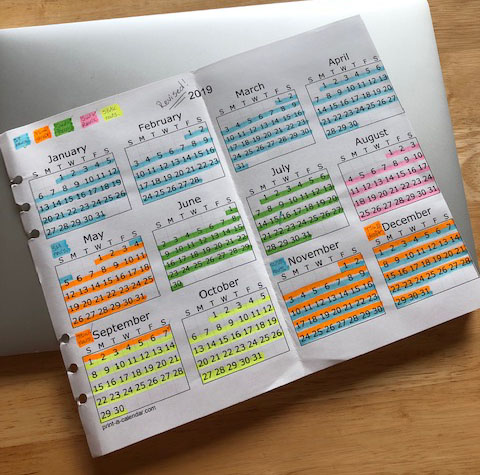 Revised!
2019
January
S M T W T F S
1 2 3 4 5
6 7 8 9 10 11 12
13 14 15 16 17 18 19
20 21 22 23 24 25 26
27 28 29 30 31
February
S M T W T F S
1 2
3 4 5 6 7 8 9
10 11 12 13 14 15 16
17 18 19 20 21 22 23
24 25 26 27 28
March
S M T W T F S
1 2
3 4 5 6 7 8 9
10 11 12 13 14 15 16
17 18 19 20 21 22 23
24 25 26 27 28 29 30
31
April
S M T W T F S
1 2 3 4 5 6
7 8 9 10 11 12 13
14 15 16 17 18 19 20
21 22 23 24 25 26 27
28 29 30
May
S M T W T F S
1 2 3 4
5 6 7 8 9 10 11
12 13 14 15 16 17 18
19 20 21 22 23 24 25
26 27 28 29 30 31
June
S M T W T F S
1
2 3 4 5 6 7 8
9 10 11 12 13 14 15
16 17 18 19 20 21 22
23 24 25 26 27 28 29
30
July
S M T W T F S
1 2 3 4 5 6
7 8 9 10 11 12 13
14 15 16 17 18 19 20
21 22 23 24 25 26 27
28 29 30 31
August
S M T W T F S
1 2 3
4 5 6 7 8 9 10
11 12 13 14 15 16 17
18 19 20 21 22 23 24
25 26 27 28 29 30 31
September
S M T W T F S
1 2 3 4 5 6 7
8 9 10 11 12 13 14
15 16 17 18 19 20 21
22 23 24 25 26 27 28
29 30
October
S M T W T F S
1 2 3 4 5
6 7 8 9 10 11 12
13 14 15 16 17 18 19
20 21 22 23 24 25 26
27 28 29 30 31
November
S M T W T F S
1 2
3 4 5 6 7 8 9
10 11 12 13 14 15 16
17 18 19 20 21 22 23
24 25 26 27 28 29 30
December
S M T W T F S
1 2 3 4 5 6 7
8 9 10 11 12 13 14
15 16 17 18 19 20 21
22 23 24 25 26 27 28
29 30 31
print-a-calendar.com